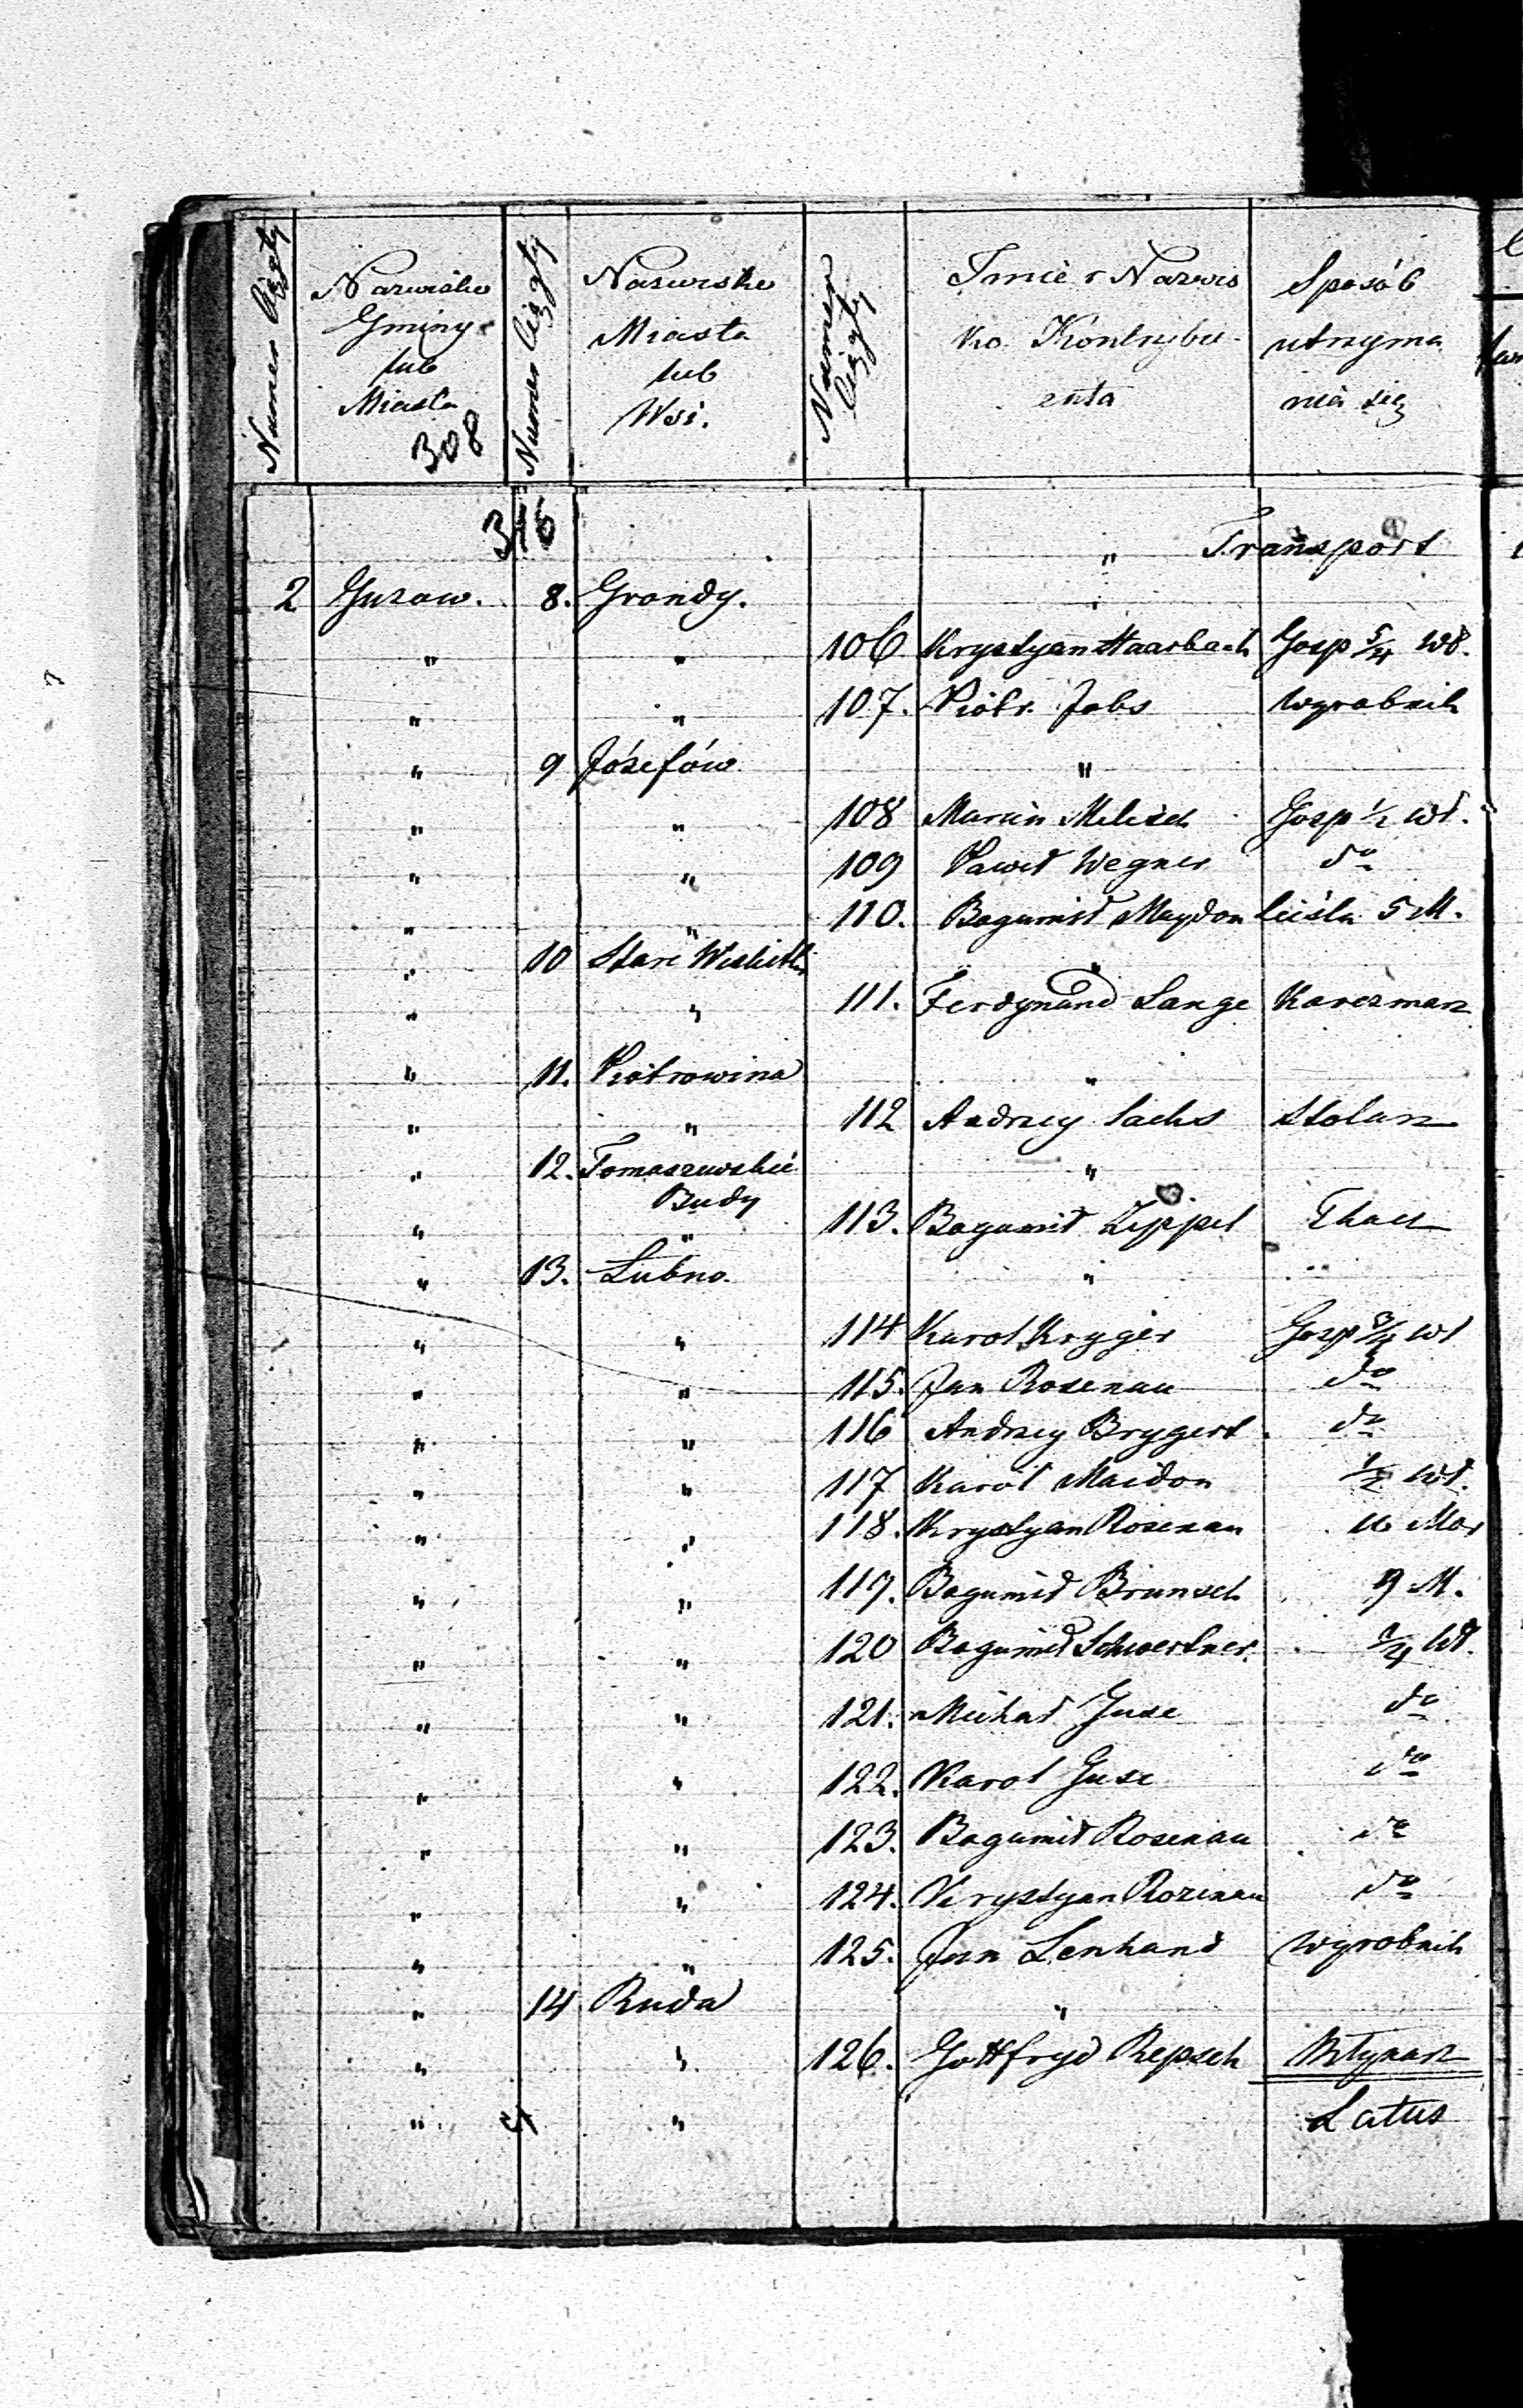 Numer Ciągły
Nazwisko Gminy lub Miasta
308
Numer Ciągły
Nazwisko Miasta lub Wsi.
Numer Ciągły
Imie i Nazwis
ko Kontrybu-
enta
Sposób
utrzyma
nia się
316
" Transport
2 Guzow. 8. Grondy. "
" " 106 Krystyan Haarbach Gosp 5/4 Wł.
" " 107. Piotr Jabs Wyrobnik
" 9 Józefów "
" " 108 Marcin Milisch Gosp 1/2 wł.
" " 109 Paweł Wegner do
" " 110. Bogumił Maydon cieśla 5 M.
" 10 Stare Wiskitki "
" " 111. Ferdynand Lange Karczmarz
" 11. Piotrowina "
" " 112 Andrzey Sachs Stolarz
" 12. Tomaszewskie "
Budy
" " 113. Bogumił Zippel Tkacz
" 13. Lubno. "
" " 114 Karol Kryger Gosp 3/4 wł
" " 115. Jan Rosenau do
" " 116 Andrzey Brygert do
" " 117 Karol Maidon 1/2 Wł.
" " 118. Krystyan Rosenau Mor
" " 119. Bogumił Brunsch 9 M.
" " 120 Bogumił Schwertner /4 Wł.
" " 121. Michał Guse do
" " 122. Karol Guse do
" " 123. Bogumił Rosenau do
" " 124. Krystyan Rozenau do
" " 125. Jan Lenhand Wyrobnik
" 14 Ruda "
" " 126. Gottfryd Repsch Młynarz
" " Latus